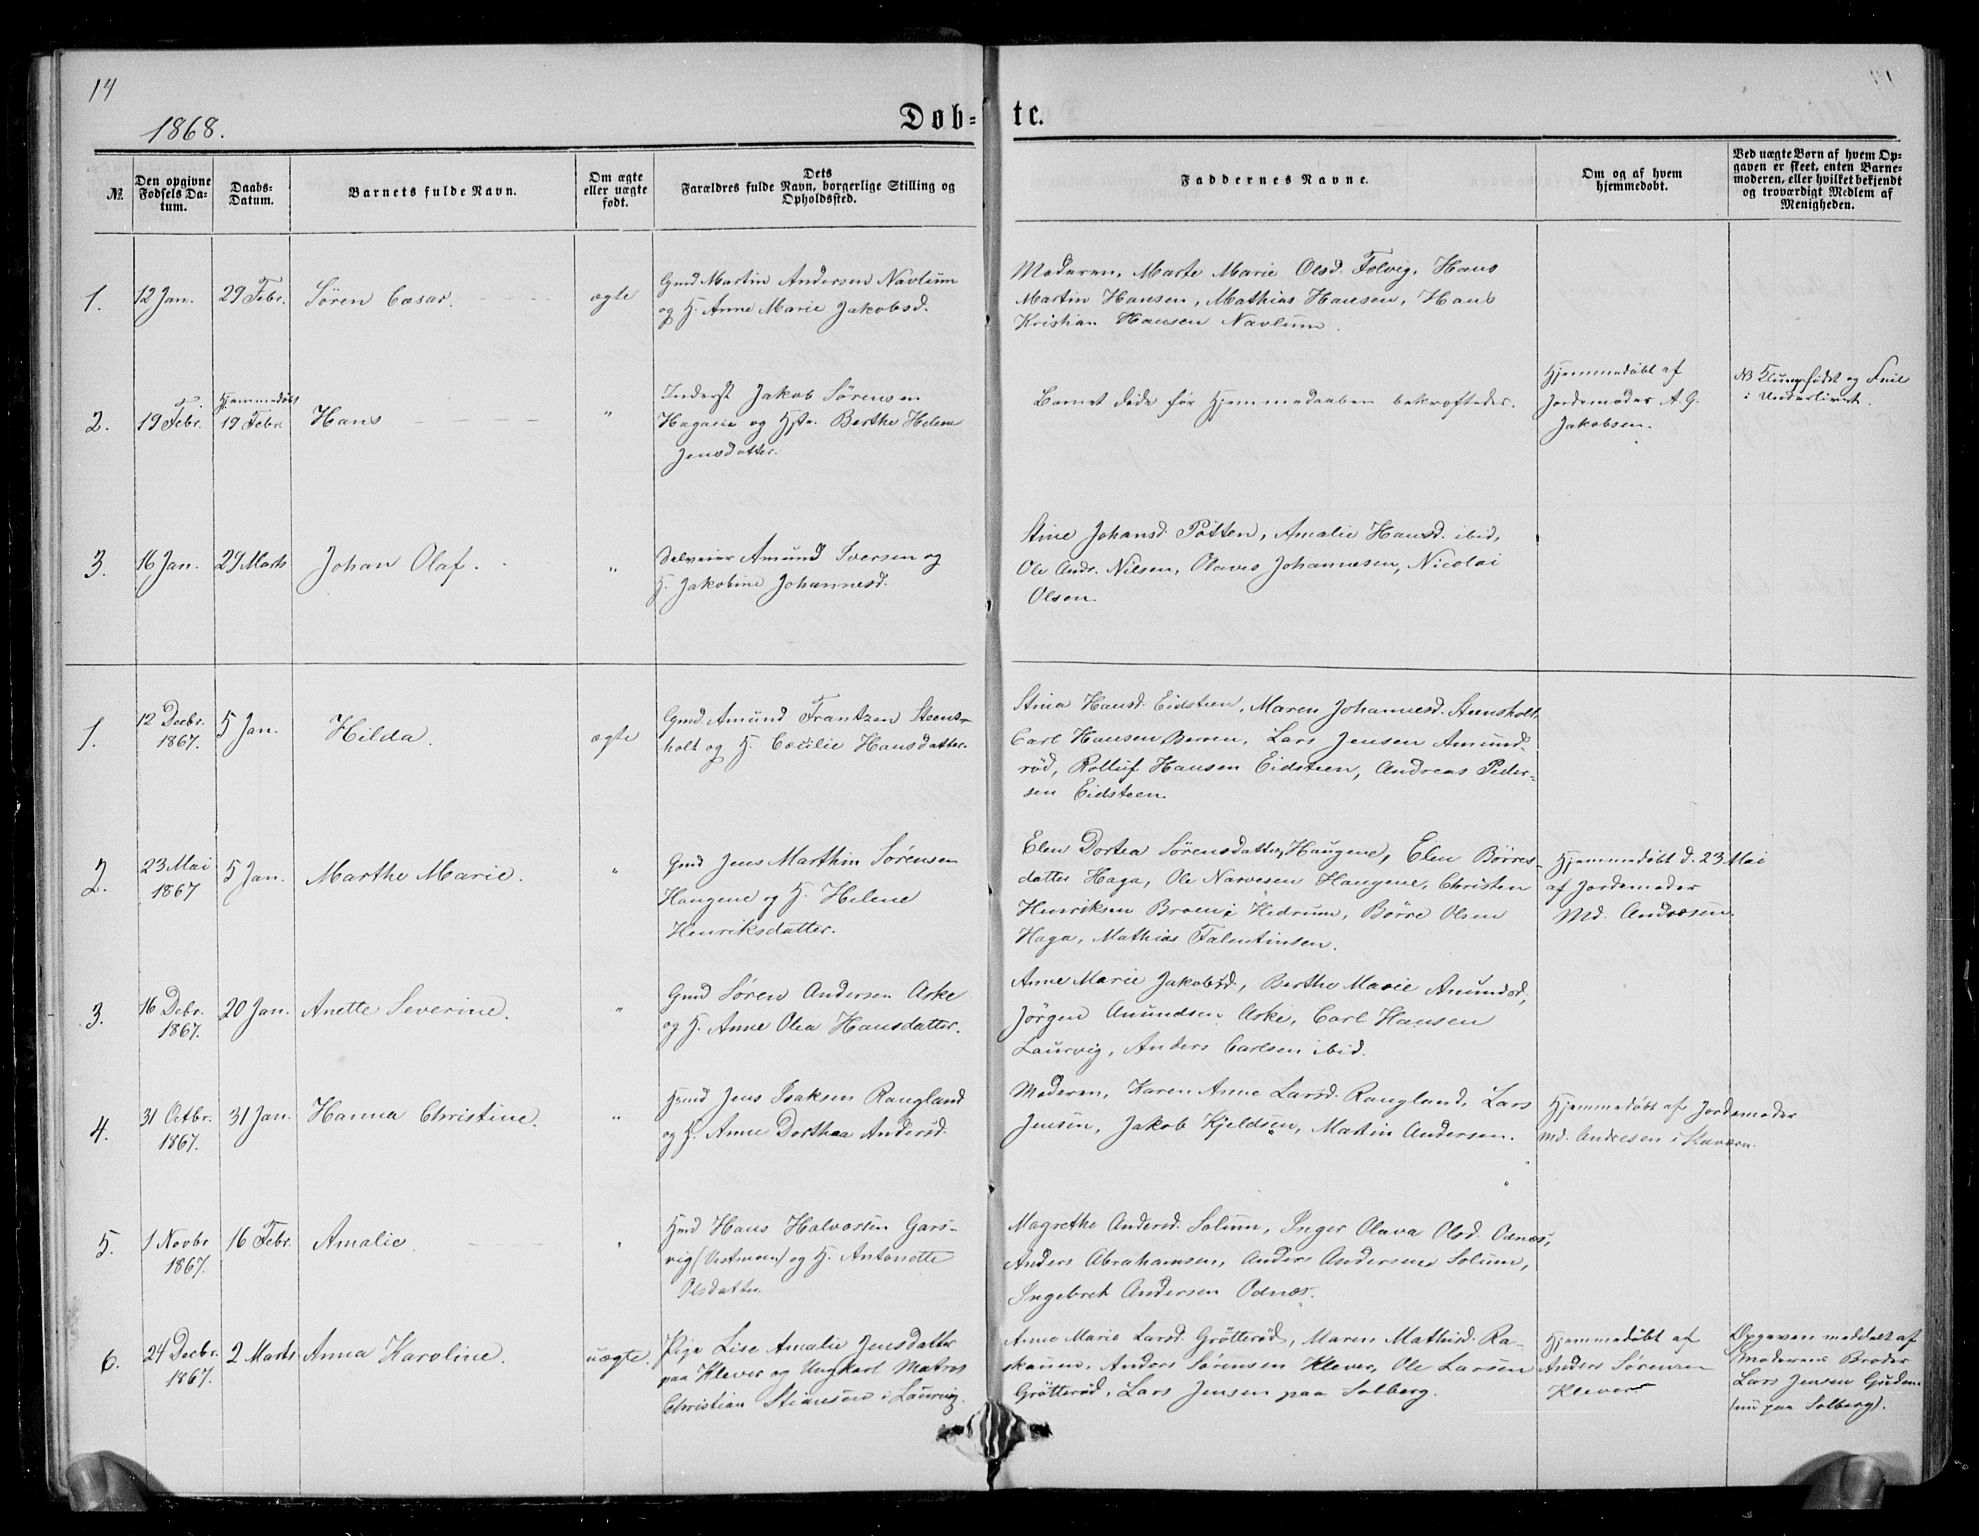 14
1868.
Døb=
te.
No.
Den opgivne
Fødsels Da-
tum.
Daabs-
Datum.
Barnets fulde Navn.
Om ægte
eller uægte
født.
Dets
Forældres fulde Navn, borgerlige Stilling og
Opholdssted.
Faddernes Navne.
Om og af hvem
hjemmedøbt.
Ved uægte Børn af hvem Op-
gaven er skeet, enten Barne-
moderen, eller hvilket bekjendt
og troværdigt Medlem af
Menigheden.
1.
12 Jan.
29 Febr.
Søren Cæsar.
ægte
Gmd Martin Andersen Navlum
og H. Anne Marie Jakobsd.
Moderen, Marte Marie Olsd. Folvig, Hans
Martin Hansen, Mathias Hansen, Hans
Kristian Hansen Navlum.
2.
19 Febr.
Hjemmedøbt
19 Febr.
Hans
"
Inderst Jakob Sørensen
Hagane og Hstr. Berthe Helene
Jensdatter.
Barnet døde før Hjemmedaaben bekræftedes.
Hjemmedøbt af
Jordemoder A. G.
Jakobsen.
NB Klumpfødt og Feil
i Underlivet.
3.
16 Jan.
29 Marts
Johan Olaf.
"
Selveier Amund Iversen og
H. Jakobine Johannesd.
Stine Johansd. Pøtten, Amalie Hansd. ibid,
Ole Andr. Nilsen, Olaves Johannesen, Nicolai
Olsen.
1.
12 Decbr.
1867.
5 Jan.
Hilda.
ægte
Gmd. Amund Frantzen Steens-
holt og H. Cæcilie Hansdatter.
Stina Hansd. Eidsteen, Maren Johannesd. Steensholt
Carl Hansen Berven, Lars Jensen Amund-
rød, Rolluf Hansen Eidsteen, Andreas Peder-
sen Eidsteen.
2.
23 Mai
1867
5 Jan.
Marthe Marie.
"
Gmd Jens Marthin Sørensen
Haugene og H. Helene
Henriksdatter.
Elen Dortea Sørensdatter Haugene, Elen Børres-
datter Haga, Ole Narvesen Haugene, Christen
Henriksen Broen i Hedrum, Børre Olsen
Haga, Mathias Falentinsen.
Hjemmedøbt d. 23 Mai
af Jordemoder
Md. Andresen.
3.
16 Debr.
1867.
20 Jan.
Anette Severine.
"
Gmd Søren Andersen Aske
og H. Anne Olea Hansdatter.
Anne Marie Jakobsd., Berthe Marie Anundsd.,
Jørgen Anundsen Aske, Carl Hansen
Laurvig, Anders Carlsen ibid.
4.
31 Octbr.
1867.
31 Jan.
Hanna Christine.
"
Hsmd Jens Isaksen Rangland
og H. Anne Dorthea Andersd.
Moderen, Karen Anne Larsd. Rangland, Lars
Jensen, Jakob Kjeldsen, Martin Andersen.
Hjemmedøbt af Jordemoder
Md. Andresen i Kvæven.
5.
1 Novbr
1867.
16 Febr.
Amalie.
"
Hsmd Hans Halvorsen Gars-
vig (Vestmoen) og H. Antonette
Olsdatter.
Magrethe Andersd. Solum, Inger Olava Olsd. Odnæs,
Anders Abrahamsen, Anders Andersen Solum,
Ingebret Andersen Odnæs.
6.
24 Decbr.
1867.
2 Marts
Anna Karoline.
uægte.
Pige Lise Amalie Jensdatter
paa Klever og Ungkarl Matros
Christian Stiansen i Laurvig.
Anne Marie Larsd. Grøtterød, Maren Mathisd. Ra-
skaunn, Anders Sørensen Klever, Ole Larsen
Grøtterød, Lars Jensen paa Solberg.
Hjemmedøbt af
Anders Sørensen
Klever
Opgaven meddelt af
Moderens Broder
Lars Jensen Guden
(nu paa Solberg).